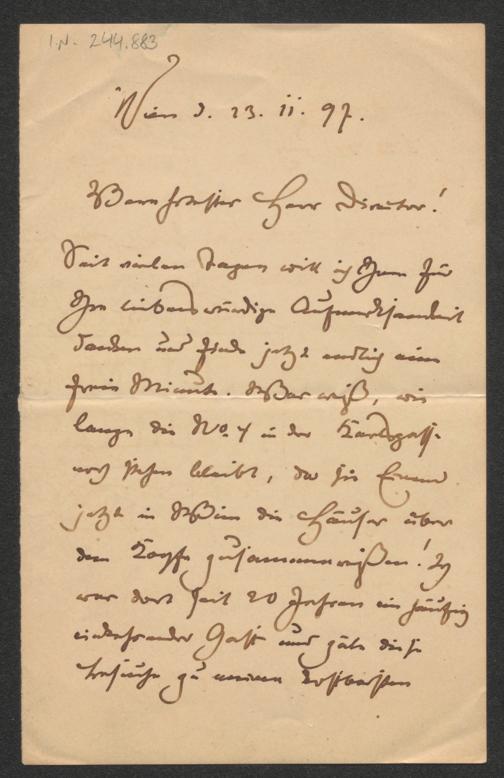 I.N. 244.883
Wien d. 23. II. 97.
Verehrtester Herr Director!
Seit vielen Tagen will ich Ihnen für
Ihre liebenswürdige Aufmerksamkeit
danken und finde jetzt endlich eine
freie Minute. Wer weiß, wie
lange die No. 4 in der Karlsgasse
noch stehen bleibt, da sie Einem
jetzt in Wien die Häuser über
dem Kopfe zusammenreißen! Ich
war dort seit 20 Jahren ein häufig
einkehrender Gast und zähle diese
Besuche zu meinen kostbarsten